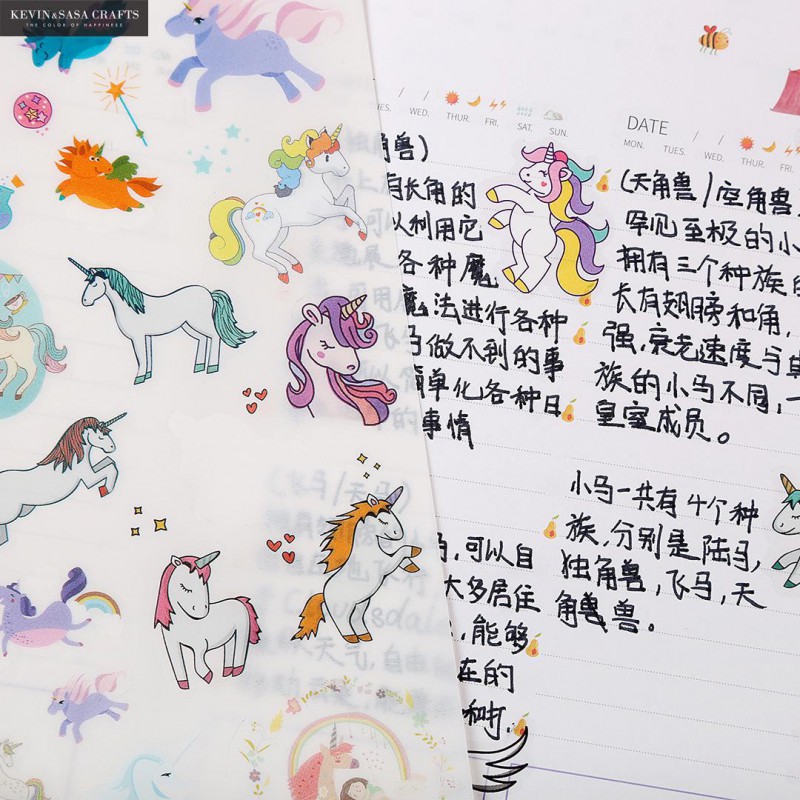 KEVIN&SASA CRAFTS
THE COLOR OF HAPPINESS
WED. THUR. FRI. SAT. SUN.
角兽)
有长角的
以利用它
各种魔
魔法进行各种
马做不到的事
简单化各种日
事情
马,可以自
大多居住
,能够
在的
和树.
DATE / /
MON. TUES. WED. THUR. FRI.
(天角兽/空角兽
罕见至极的小
拥有三个种族的
长有翅膀和角,
强,衰老速度与
族的小马不同,一
皇室成员。
小马一共有4个种
族,分别是陆马,
独角兽,飞马,天
角兽。